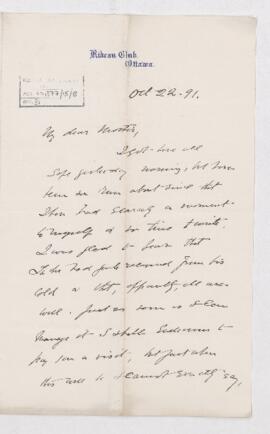 Rideau Club,
Ottawa.
Oct 22-91.
My dear
I got here all
safe yesterday morning, but have
been so run about since that
I have had scarcely a moment
to myself & so time to write.
I was glad to learn that
he had quite recovered from his
cold & that, apparently, all are
well. Just as soon as I can
manage it I shall endeavour to
pay you a visit, but just when
this will be I cannot exactly say,